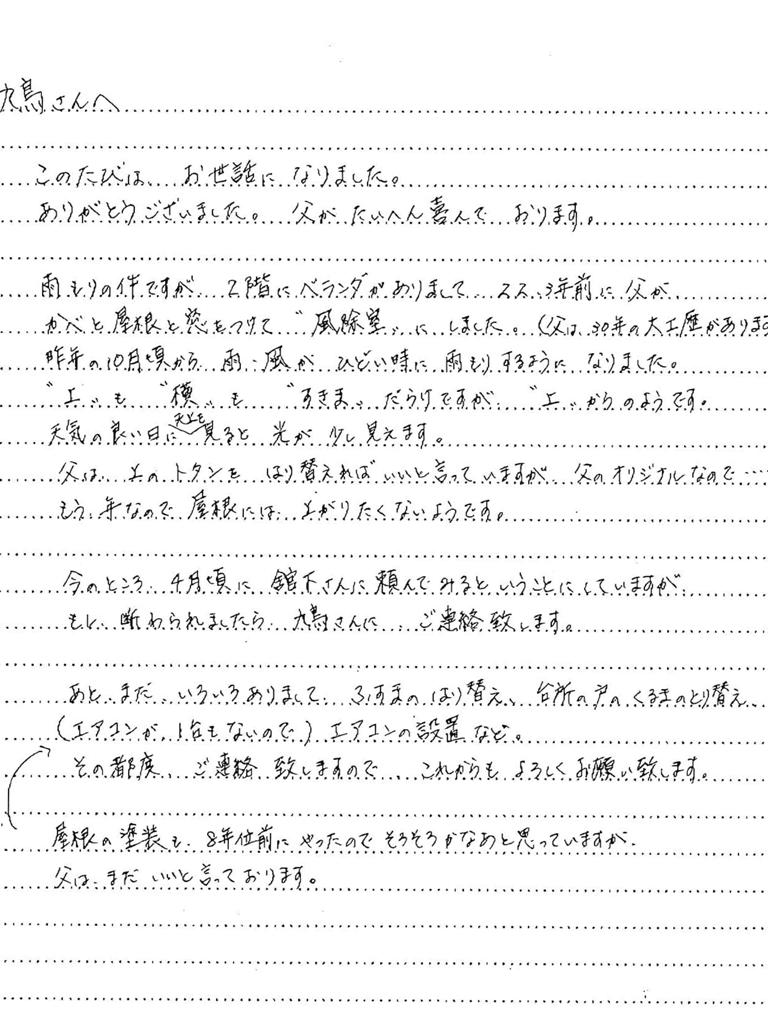 九鳥さんへ
このたびは、お世話になりました。
ありがとうございました。父がたいへん喜んでおります。
雨もりの件ですが、2階にベランダがありまして、2、3年前に父が
かべと屋根と窓をつけて"風除室"にしました。(父は、30年の大工歴があります
昨年の10月頃から、雨・風がひどい時に雨もりするようになりました。
"上"も"横"も"すきま"だらけですが、"上"からのようです。
天気の良い日に天上を見ると光が少し見えます。
父は、上のトタンをはり替えればいいと言っていますが、父のオリジナルなので……
もう、年なので屋根には、上がりたくないようです。
今のところ、4月頃に舘下さんに頼んでみるということにしていますが、
もし、断わられましたら、九鳥さんに、ご連絡致します。
あと、まだ、いろいろありまして、ふすまのはり替え、台所の戸のくるまのとり替え、
(エアコンが、1台もないので)エアコンの設置など。
その都度、ご連絡致しますので、これからもよろしくお願い致します。
屋根の塗装も、8年位前にやったのでそろそろかなあと思っていますが、
父は、まだいいと言っております。